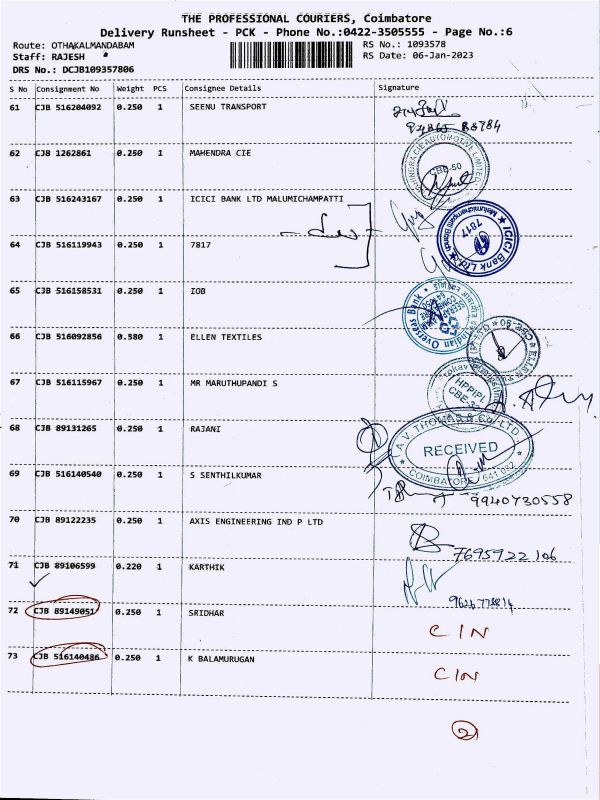 THE PROFESSIONAL COURIERS, Coimbatore
Delivery Runsheet - PCK - Phone No.:0422-3505555 - Page No.:6
Route: OTHAKALMANDABAM RS No.: 1093578
Staff: RAJESH RS Date: 06-Jan-2023
DRS No.: DCJB109357806
S No Consignment No Weight PCS Consignee Details Signature
61 CJB 516204092 0.250 1 SEENU TRANSPORT
62 CJB 1262861 0.250 1 MAHENDRA CIE
CBE-50
63 CJB 516243167 0.250 1 ICICI BANK LTD MALUMICHAMPATTI
ICICI Bank Ltd Malumichampatti Branch
7817
64 CJB 516119943 0.250 1 7817
65 CJB 516158531 0.250 1 IOB
Indian Overseas Bank
66 CJB 516092856 0.580 1 ELLEN TEXTILES
67 CJB 516115967 0.250 1 MR MARUTHUPANDI S
HPPIPL
68 CJB 89131265 0.250 1 RAJANI
A.V. THOMAS & CO. LTD.
RECEIVED
COIMBATORE
69 CJB 516140540 0.250 1 S SENTHILKUMAR
9940730558
70 CJB 89122235 0.250 1 AXIS ENGINEERING IND P LTD
7695922106
71 CJB 89106599 0.220 1 KARTHIK
72 CJB 89149051 0.250 1 SRIDHAR
CIN
73 CJB 516140486 0.250 1 K BALAMURUGAN
CIN
2